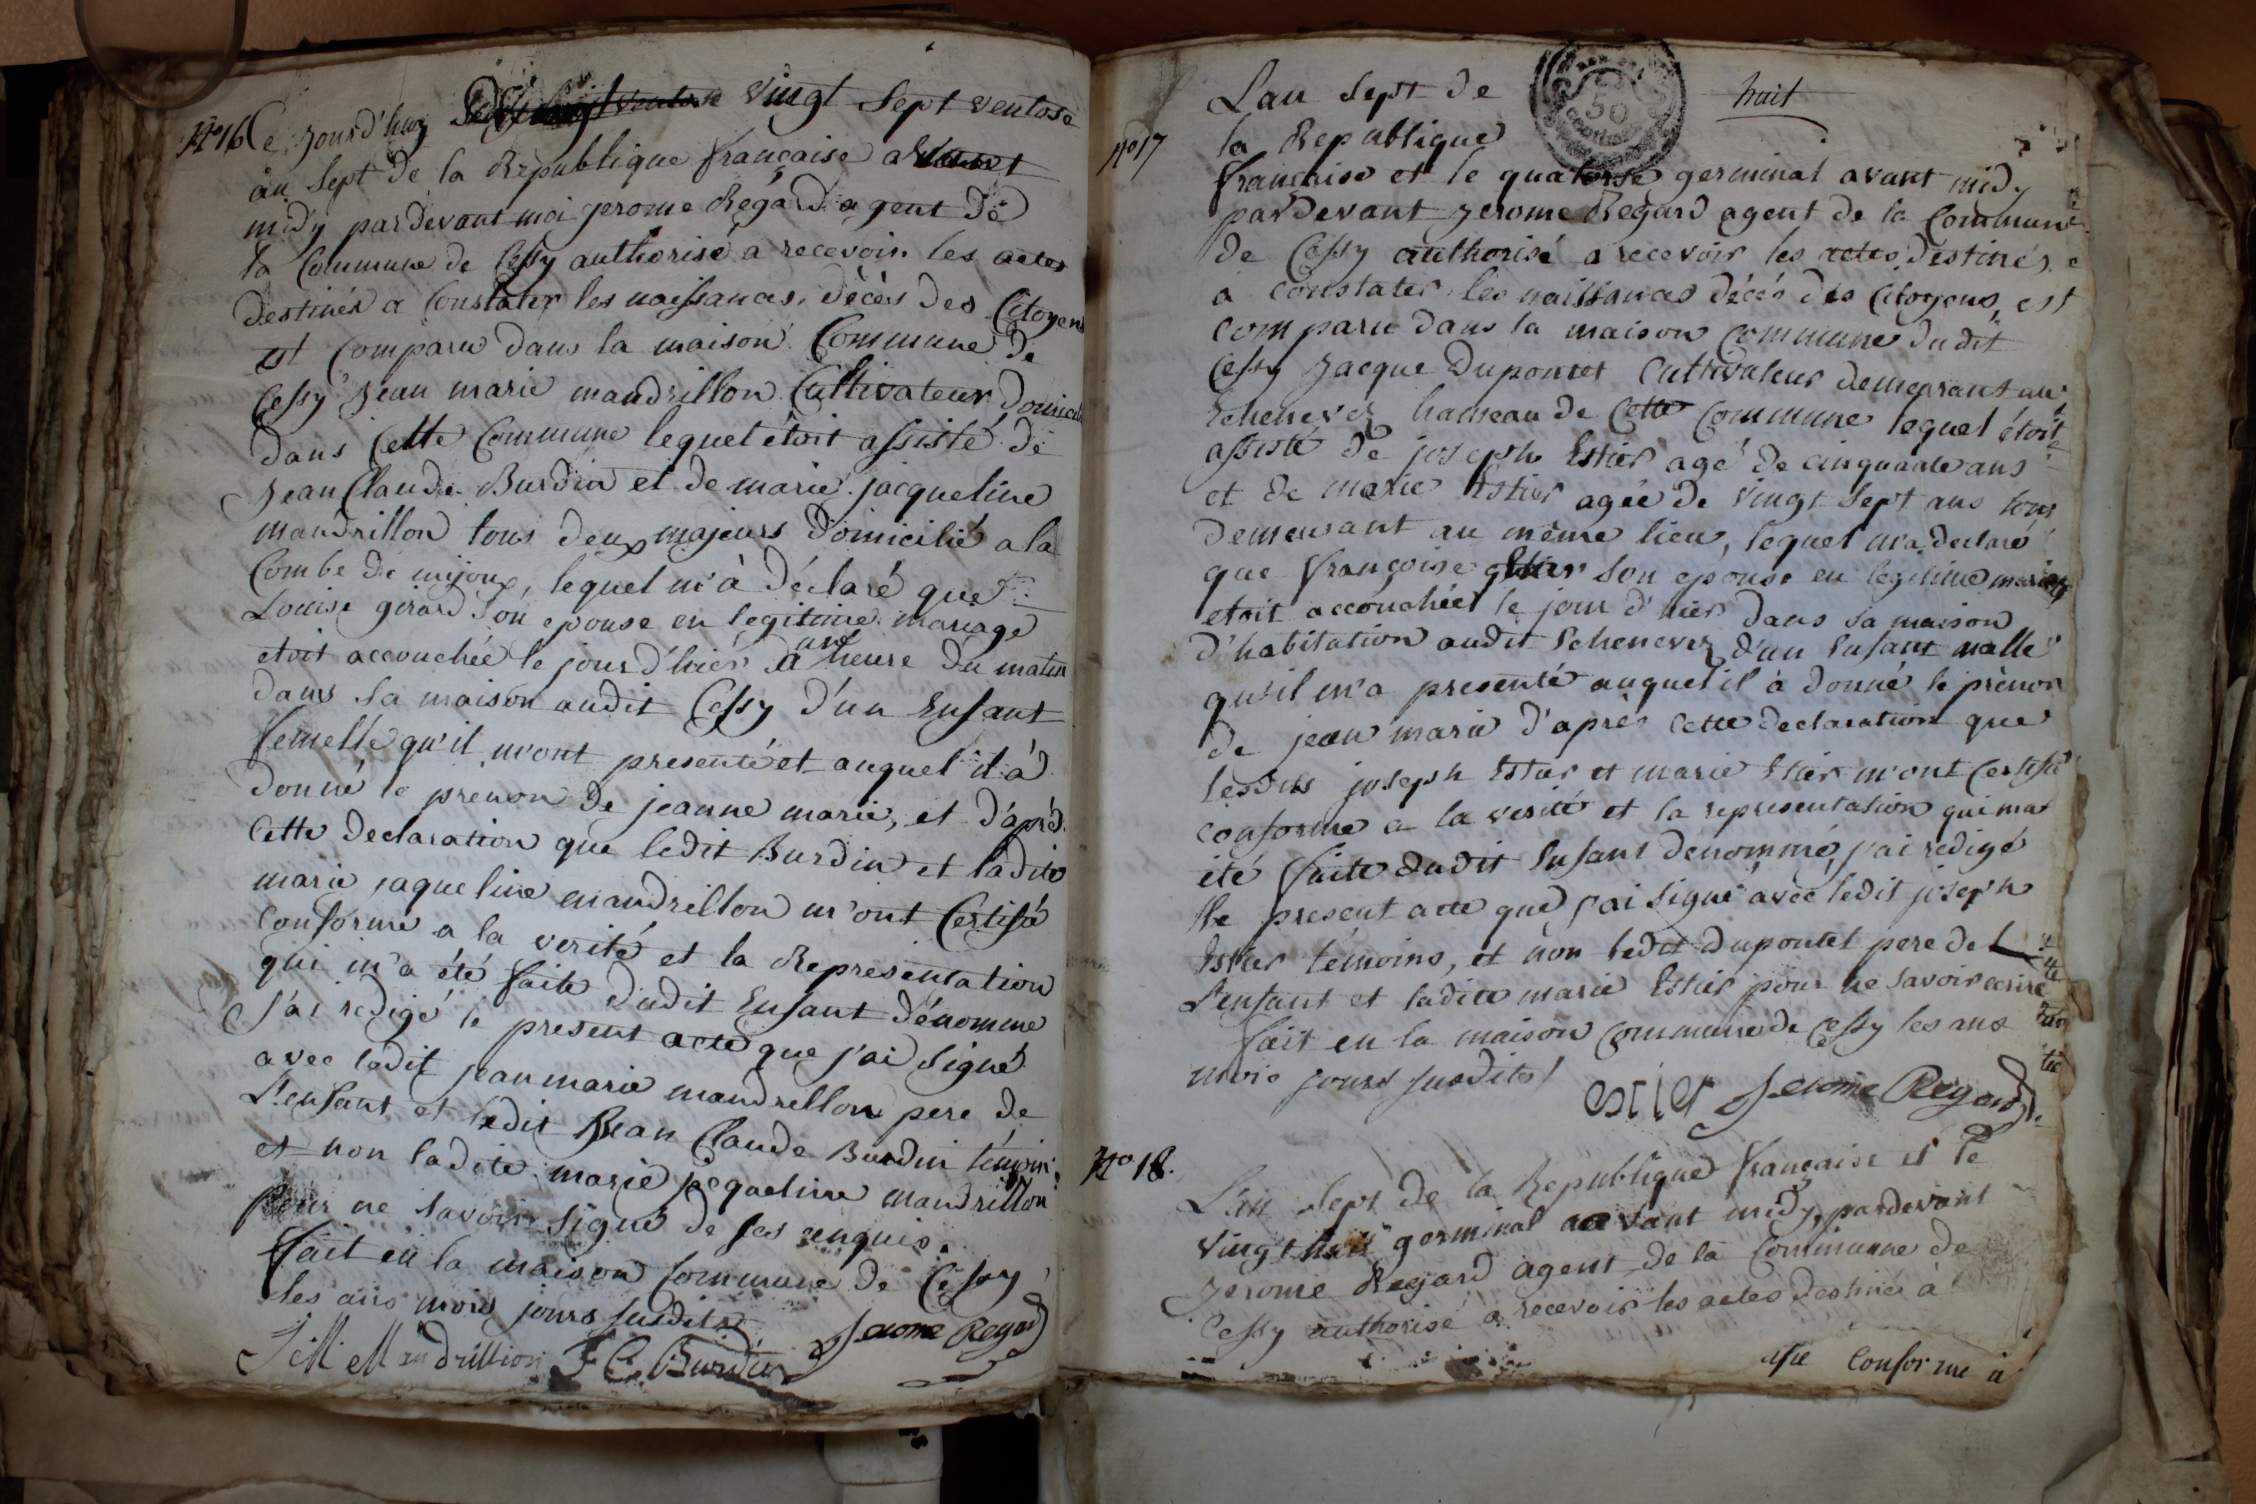 N° 16 Ce jourd'huy vingt sept ventose
an sept de la Republique française avant
midy pardevant moi jerome Regard agent de
la Commune de Cessy authorisé a recevoir les actes
destinés a Constater les naissances, décès des Citoyens
est Comparu dans la maison Commune de
Cessy Jean marie mandrillon Cultivateur domicilié
dans Cette Commune lequel étoit assisté de
Jean Claude Burdin et de marie jacqueline
mandrillon tous deux majeurs domicilié a la
Combe de mijoux, lequel m'à déclaré que
Louise girard son epouse en legitime mariage
etoit accouchée le jour d'hier à une heure du matin
dans sa maison audit Cessy d'un Enfant
femelle qu'il m'ont presenté et auquel il à
donné le prenon de jeanne marie, et d'aprés
Cette declaration que ledit Burdin et ladite
marie jaqueline mandrillon m'ont Certifié
conforme a la verité et la Representation
qui m'a été faite dudit Enfant dénommé
j'ai redigé le present acte que j'ai signé
avec ledit jean marie mandrillon pere de
L'enfant et ledit Jean Claude Burdin témoin
et non ladite marie jaqueline mandrillon
pour ne savoir signé de ses enquis.
fait en la maison Commune de Cessy
les ans mois jours susdits
J M Mandrillion J C Burdin Jerome Regard
huit
N° 17 L'an sept de
la Republique
française et le quatorse germinal avant midy
pardevant jerome Regard agent de la Commune
de Cessy authorisé a recevoir les actes destinés
a constater les naissances décés des Citoyens, est
comparu dans la maison Commune dudit
Cessy Jacque Dupontet Cultivateur demeurant au
Echenevez hameau de Cette Commune lequel étoit
assisté de joseph Estier agé de cinquante ans
et de marie Estier agée de vingt sept ans tous
demeurant au même lieu, lequel m'a declaré
que françoise Estier son epouse en legitime mariage
etoit accouchée le jour d'hier dans sa maison
d'habitation audit Echenevez d'un Enfant malle
qu'il m'a presenté auquel il à donné le prénon
de jean marie d'après cette declaration que
lesdits joseph Estier et marie Estier m'ont Certifié
conforme a la verité et la representation qui ma
été faite dudit Enfant denommé, j'ai redigé
le present acte que j'ai signé avec ledit joseph
Estier témoins, et non ledit Dupontet pere de
L'enfant et ladite marie Estier pour ne savoir ecrire
fait en la maison Commune de Cessy les ans
mois jours susdits
estier Jerome Regard
N° 18. L'an sept de la Republique française et le
vingt huit germinal avant midy, pardevant
jerome Regard agent de la Commune de
Cessy authorisé a recevoir les actes destinés à
conforme à